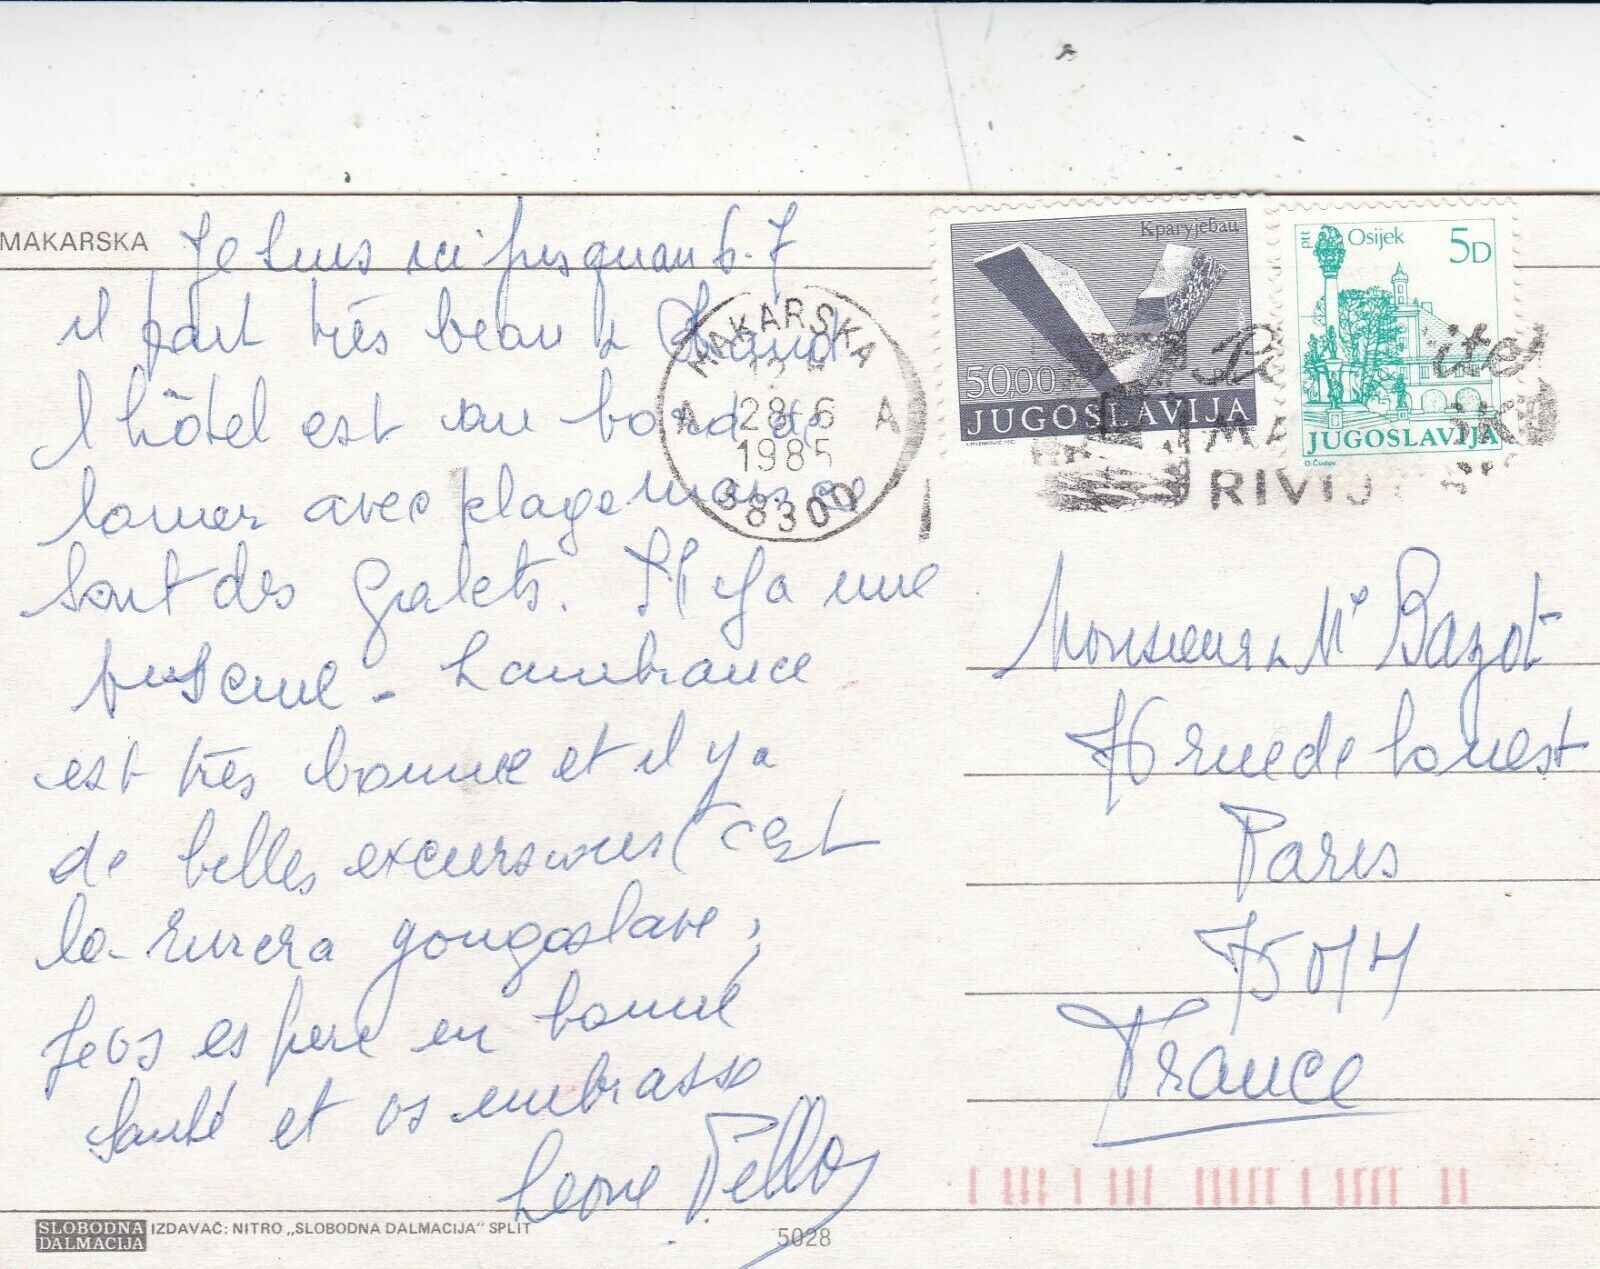 MAKARSKA
Je suis ici jusquau 6.7
il fait très beau & chaud
l hôtel est au bord de
lamer avec plage mais ce
sont des galets. Il ya une
piscine - Lambiance
est très bonne et il y a
de belles excursions c'est
la riviera yougoslave,
Je vs espère en bonne
santé et vs embrasse
Leone Pellos
MAKARSKA
A 28-6 A
1985
58300
Крагујевац
50,00
JUGOSLAVIJA
ptt Osijek 5D
JUGOSLAVIJA
D. Čudov
RIVIJ
Monsieur & Me Bazot
76 rue de louest
Paris
75014
France
SLOBODNA
DALMACIJA
IZDAVAČ: NITRO „SLOBODNA DALMACIJA" SPLIT
5028